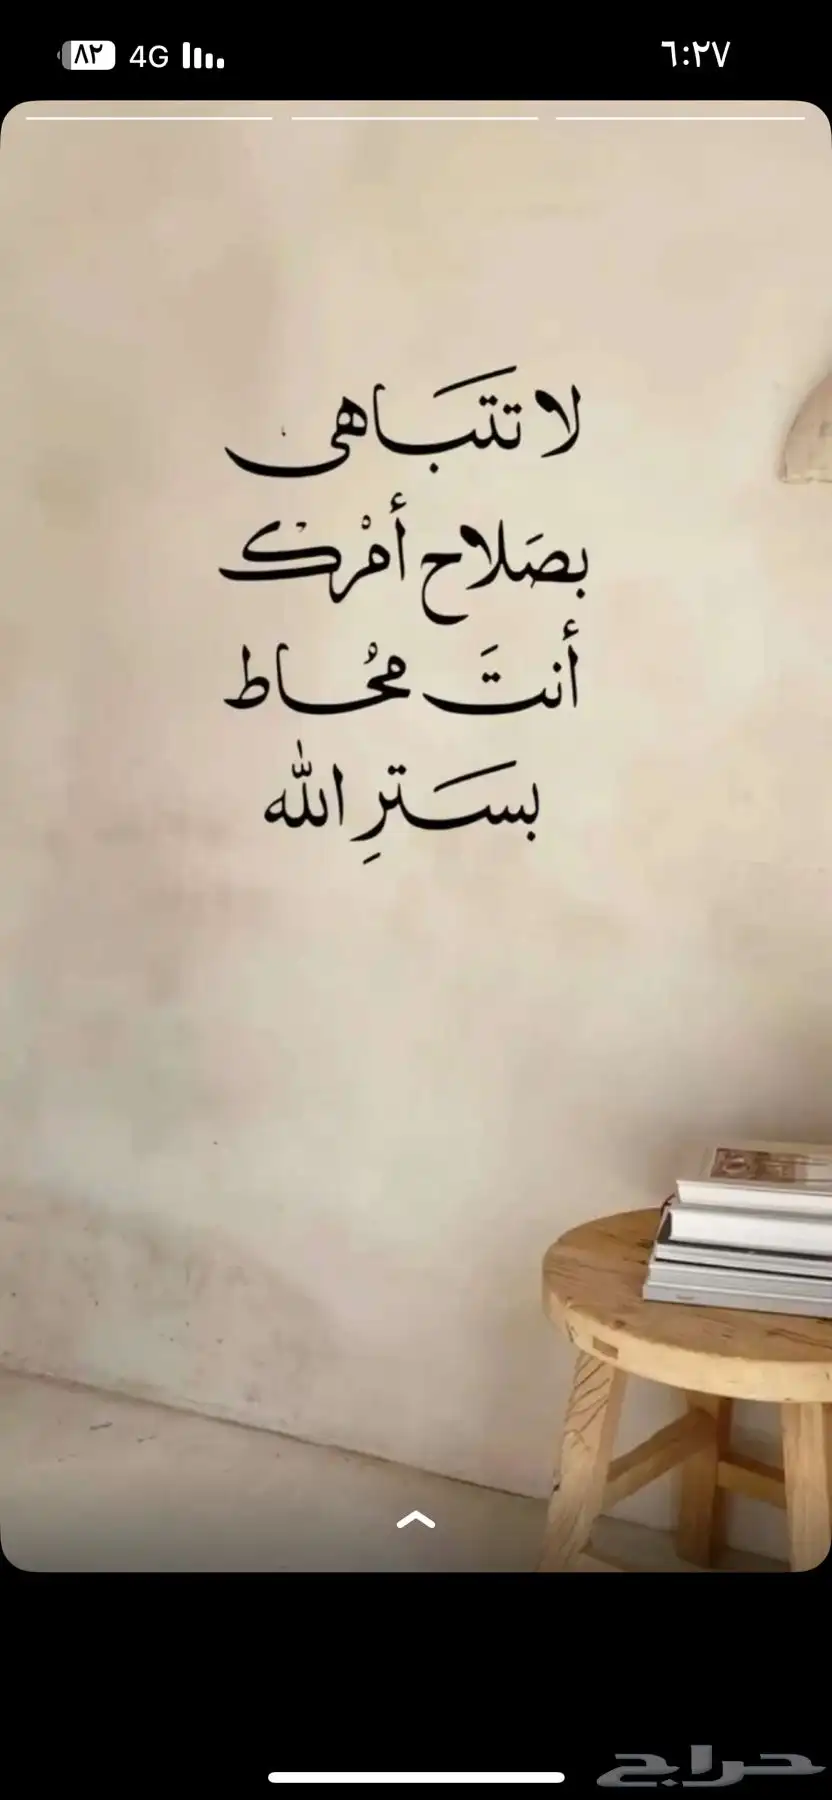 ٨٢ 4G ٦:٢٧
لا تتباهى
بصَلاح أمْرك
أنتَ مُحاط
بستَرِ الله
حراج